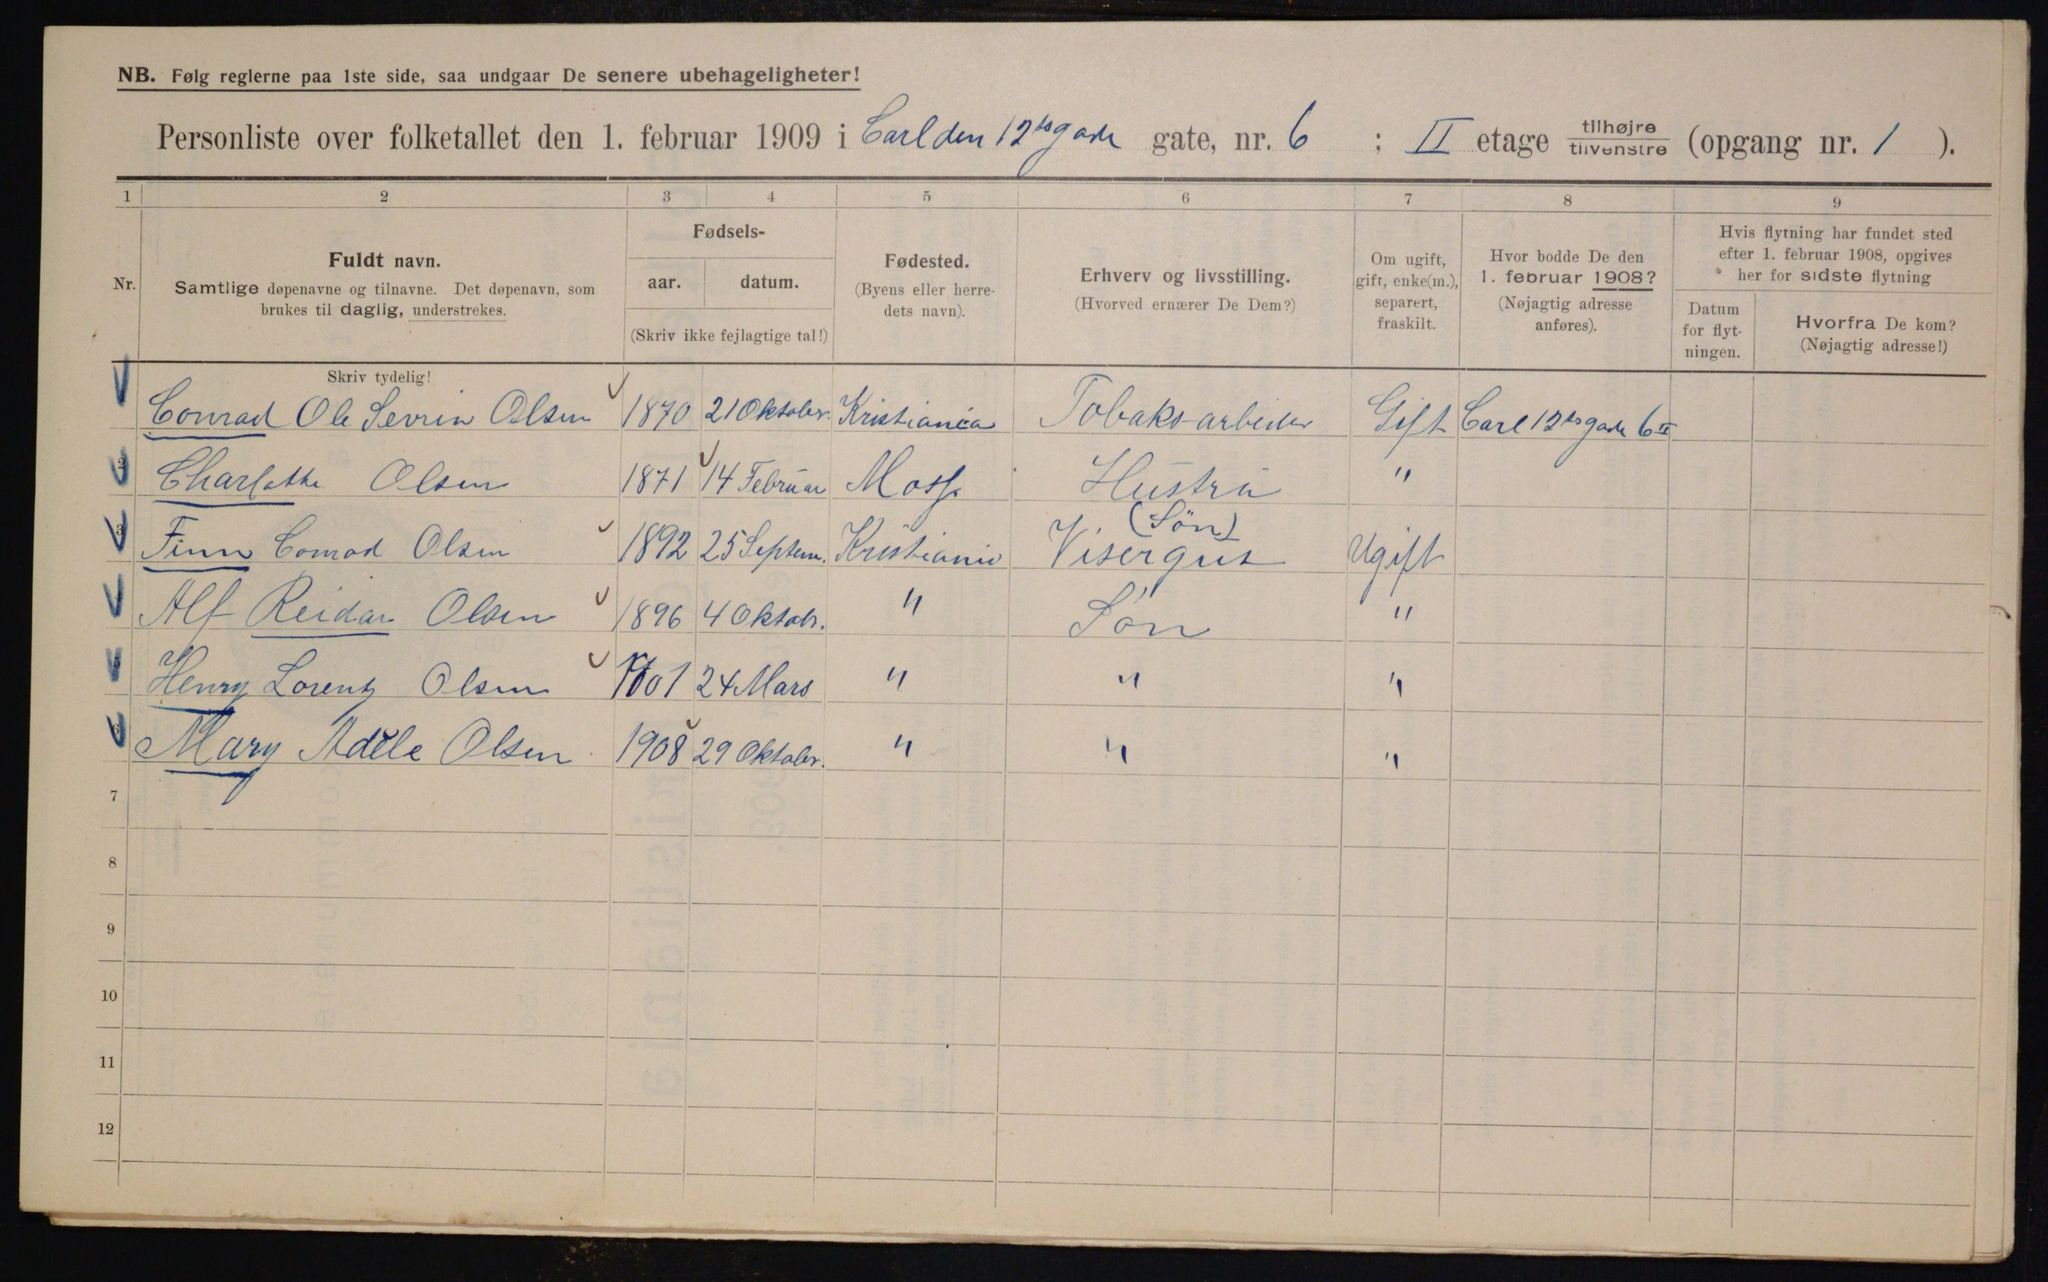 NB. Følg reglerne paa 1ste side, saa undgaar De senere ubehageligheter!
Personliste over folketallet den 1. februar 1909 i Carl den 12tes gade gate, nr. 6 ; II etage tilhøjre tilvenstre (opgang nr. 1 ).
1 2 3 4 5 6 7 8 9
Nr. Fuldt navn. Samtlige døpenavne og tilnavne. Det døpenavn, som brukes til daglig, understrekes. Skriv tydelig!
Fødsels- aar. datum. (Skriv ikke fejlagtige tal!)
Fødested. (Byens eller herredets navn).
Erhverv og livsstilling. (Hvorved ernærer De Dem?)
Om ugift, gift, enke(m.), separert, fraskilt.
Hvor bodde De den 1. februar 1908? (Nøjagtig adresse anføres).
Hvis flytning har fundet sted efter 1. februar 1908, opgives her for sidste flytning
Datum for flytningen. Hvorfra De kom? (Nøjagtig adresse!)
Conrad Ole Sevrin Olsen 1870 21 Oktober. Kristiania Tobaks-arbeider Gift Carl 12tes gade 6 II
2 Charlotte Olsen 1871 14 Februar Moss Hustru "
3 Finn Conrad Olsen 1892 25 Septem. Kristiania (Søn) Visergut Ugift
4 Alf Reidar Olsen 1896 4 Oktobr. " Søn "
5 Henry Lorentz Olsen 1901 24 Mars " " "
6 Mary Adèle Olsen 1908 29 Oktobr. " " "
7
8
9
10
11
12